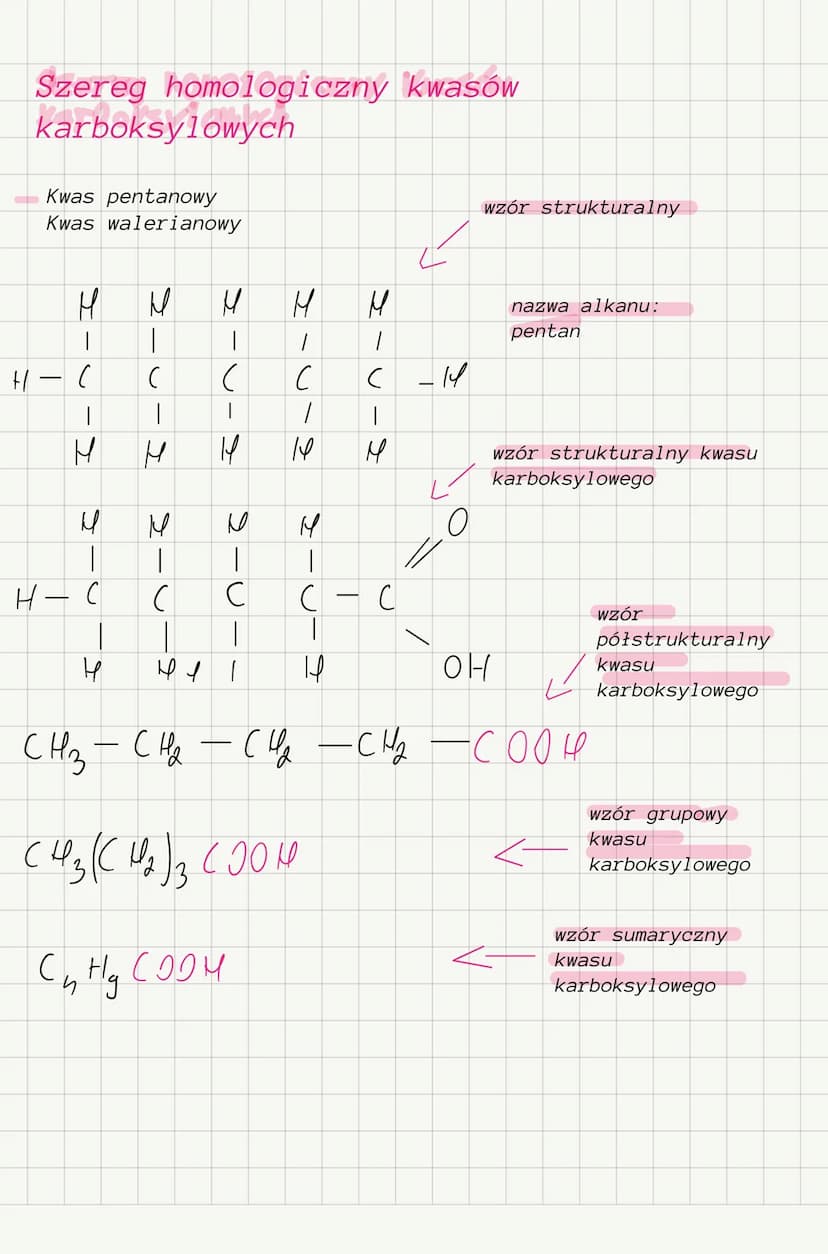 Szereg homologiczny kwasów
karboksylowych
Kwas pentanowy
Kwas walerianowy
wzór strukturalny
nazwa alkanu:
pentan
H H H H H
| | | | |
H - C C C C C - H
| | | | |
H H H H H
wzór strukturalny kwasu
karboksylowego
H H H H O
| | | | //
H - C C C C - C
| | | | \
H H | H OH
wzór
półstrukturalny
kwasu
karboksylowego
CH3 - CH2 - CH2 - CH2 - COOH
CH3(CH2)3 COOH
wzór grupowy
kwasu
karboksylowego
C4 H9 COOH
wzór sumaryczny
kwasu
karboksylowego